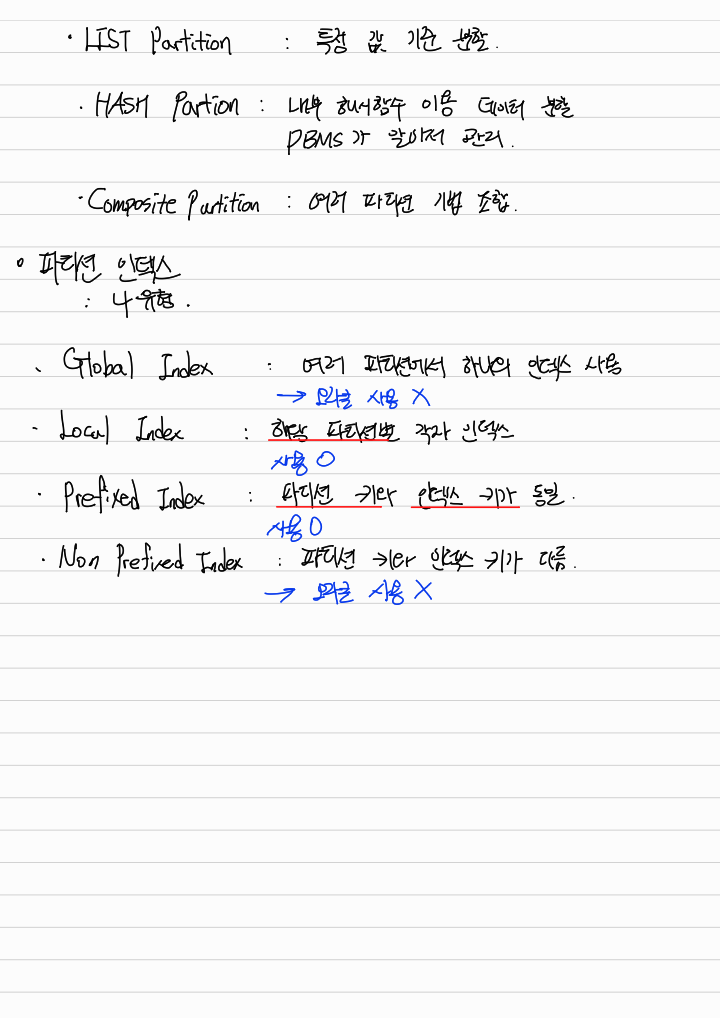 · LIST Partition : 특정 값 기준 분할.
· HASH Partion : 내부 해시함수 이용 데이터 분할
DBMS가 알아서 관리.
· Composite Partition : 여러 파티션 기법 조합.
° 파티션 인덱스
: 4유형.
· Global Index : 여러 파티션에서 하나의 인덱스 사용
→ 오라클 사용 X
· Local Index : 해당 파티션별 각자 인덱스
사용 O
· Prefixed Index : 파티션 키와 인덱스 키가 동일.
사용 O
· Non Prefixed Index : 파티션 키와 인덱스 키가 다름.
→ 오라클 사용 X